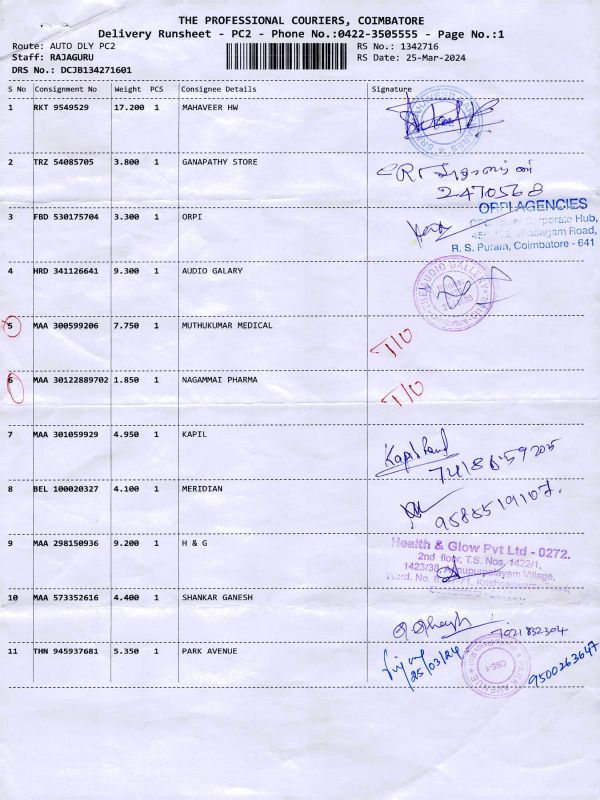 THE PROFESSIONAL COURIERS, COIMBATORE
Delivery Runsheet - PC2 - Phone No.:0422-3505555 - Page No.:1
Route: AUTO DLY PC2 RS No.: 1342716
Staff: RAJAGURU RS Date: 25-Mar-2024
DRS No.: DCJB134271601
S No Consignment No Weight PCS Consignee Details Signature
1 RKT 9549529 17.200 1 MAHAVEER HW
2 TRZ 54085705 3.800 1 GANAPATHY STORE
2470568
3 FBD 530175704 3.300 1 ORPI
ORPI AGENCIES
Corporate Hub,
Road,
R. S. Puram, Coimbatore - 641
4 HRD 341126641 9.300 1 AUDIO GALARY
5 MAA 300599206 7.750 1 MUTHUKUMAR MEDICAL T/O
6 MAA 30122889702 1.850 1 NAGAMMAI PHARMA T/O
7 MAA 301059929 4.950 1 KAPIL
8 BEL 100020327 4.100 1 MERIDIAN
9585519107.
9 MAA 298150936 9.200 1 H & G
Health & Glow Pvt Ltd - 0272.
2nd floor, T.S. Nos. 1422/1,
Village,
10 MAA 573352616 4.400 1 SHANKAR GANESH
11 THN 945937681 5.350 1 PARK AVENUE
25/03/24
PARK AVENUE
CBE-1
9500263647